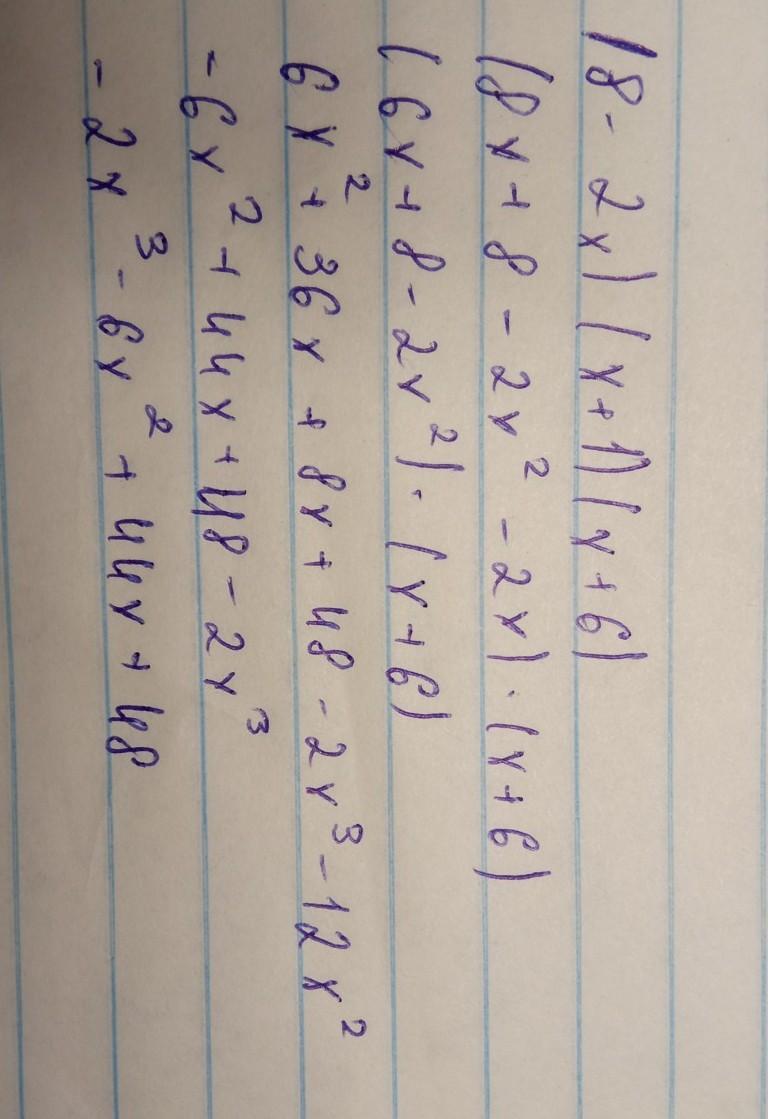 (8 - 2x) (x+1) (x+6)
(8x + 8 - 2x² - 2x) · (x+6)
(6x + 8 - 2x²) · (x+6)
6x² + 36x + 8x + 48 - 2x³ - 12x²
- 6x² + 44x + 48 - 2x³
- 2x³ - 6x² + 44x + 48